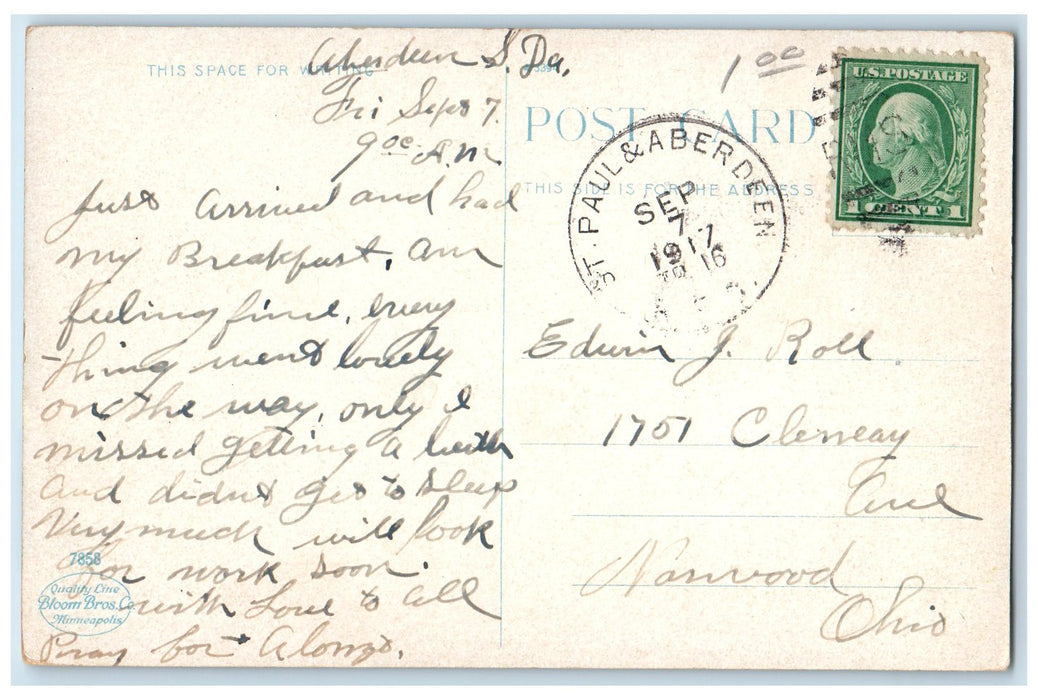 THIS SPACE FOR WRITING
Aberdeen S. Da,
Fri Sept 7.
9 oc A.M
just arrived and had
my Breakfast, am
feeling fine, every
thing went lovely
on the way, only I
missed getting a berth
and didnt get to sleep
Very much will look
for work soon.
with Love to all
Pray for Alonzo.
7858
Quality Line
Bloom Bros. Co.
Minneapolis
1 00
POST CARD
THIS SIDE IS FOR THE ADDRESS
ST. PAUL & ABERDEEN
SEP
7
1917
TR 16
U.S. POSTAGE
1 CENT 1
Edwin J. Roll.
1751 Cleneay
Ave
Norwood
Ohio